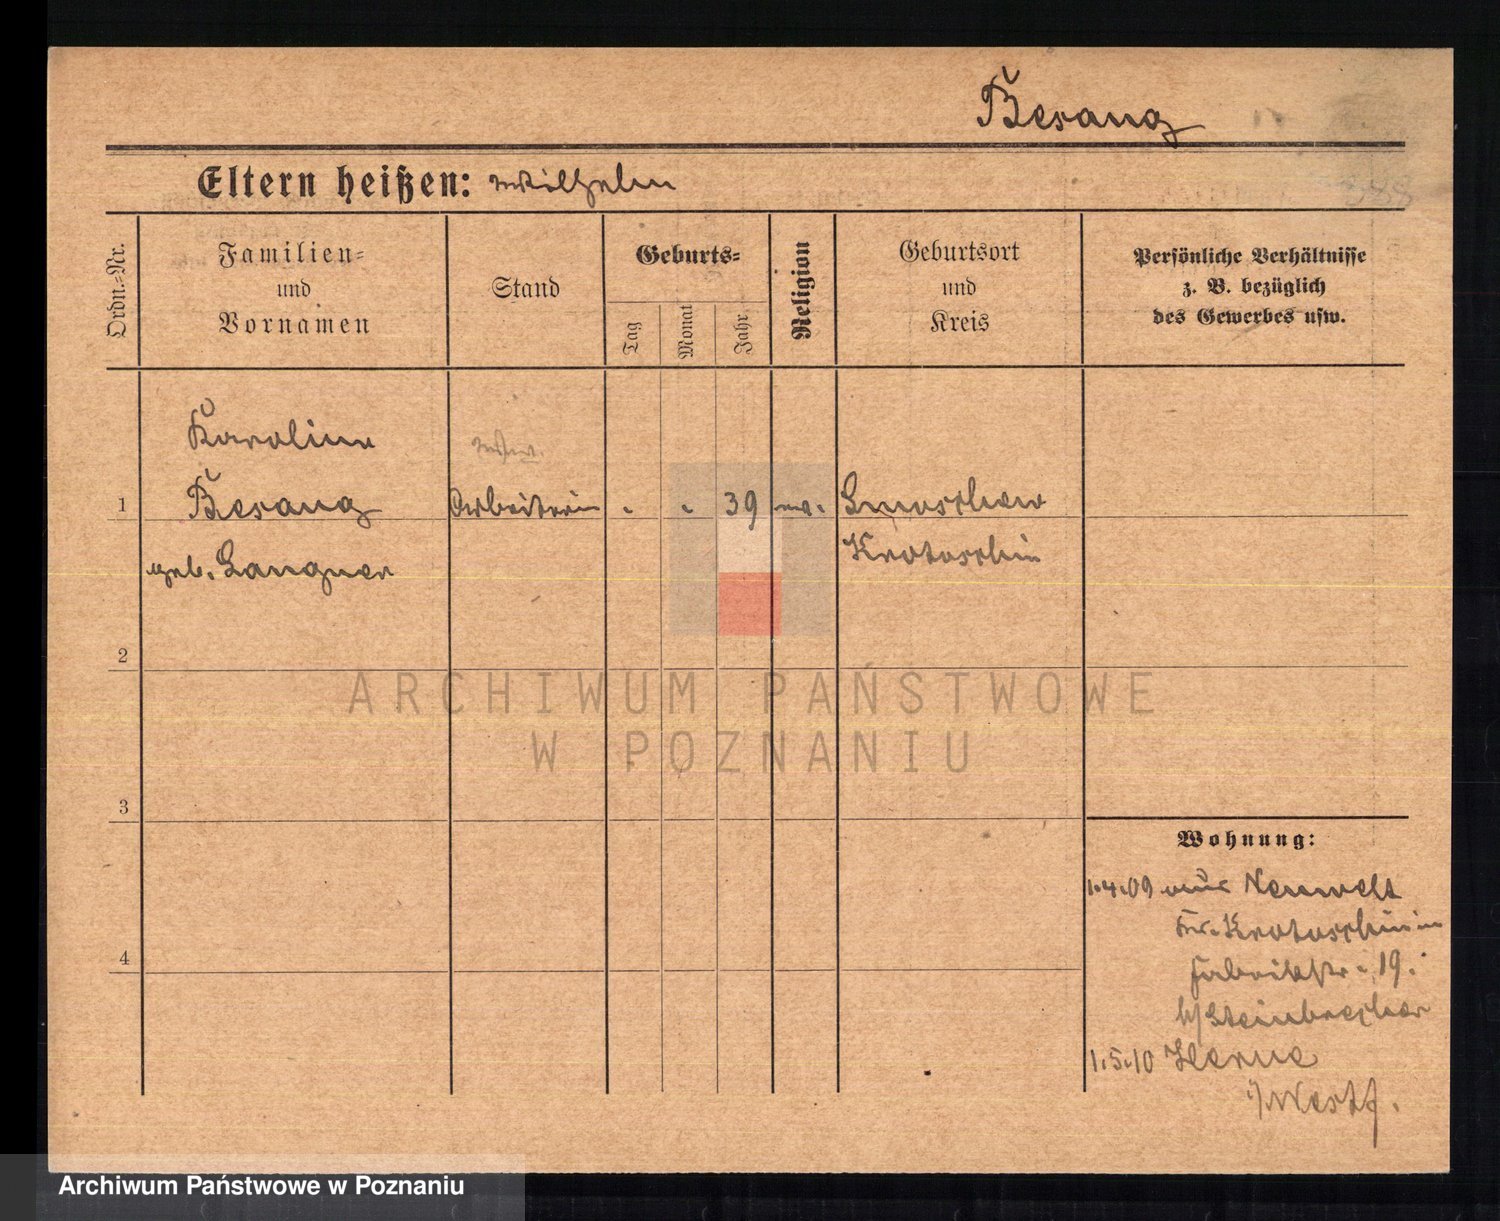 Besang
Eltern heißen: Wilhelm
Ordn.-Nr.
Familien-
und
Vornamen
Stand
Geburts-
Tag
Monat
Jahr
Religion
Geburtsort
und
Kreis
Persönliche Verhältnisse
z. B. bezüglich
des Gewerbes usw.
Karoline
1 Besang Arbeiterin " " 39 ev.
geb. Langner Krotoschin
2
ARCHIWUM PAŃSTWOWE
W POZNANIU
3
Wohnung:
1.4.09 aus Neuwelt
Kr. Krotoschin in
4
Fabrikstr. 19.
b/ Steinbrecher
1.5.10 Herne
i/ Westf.
Archiwum Państwowe w Poznaniu